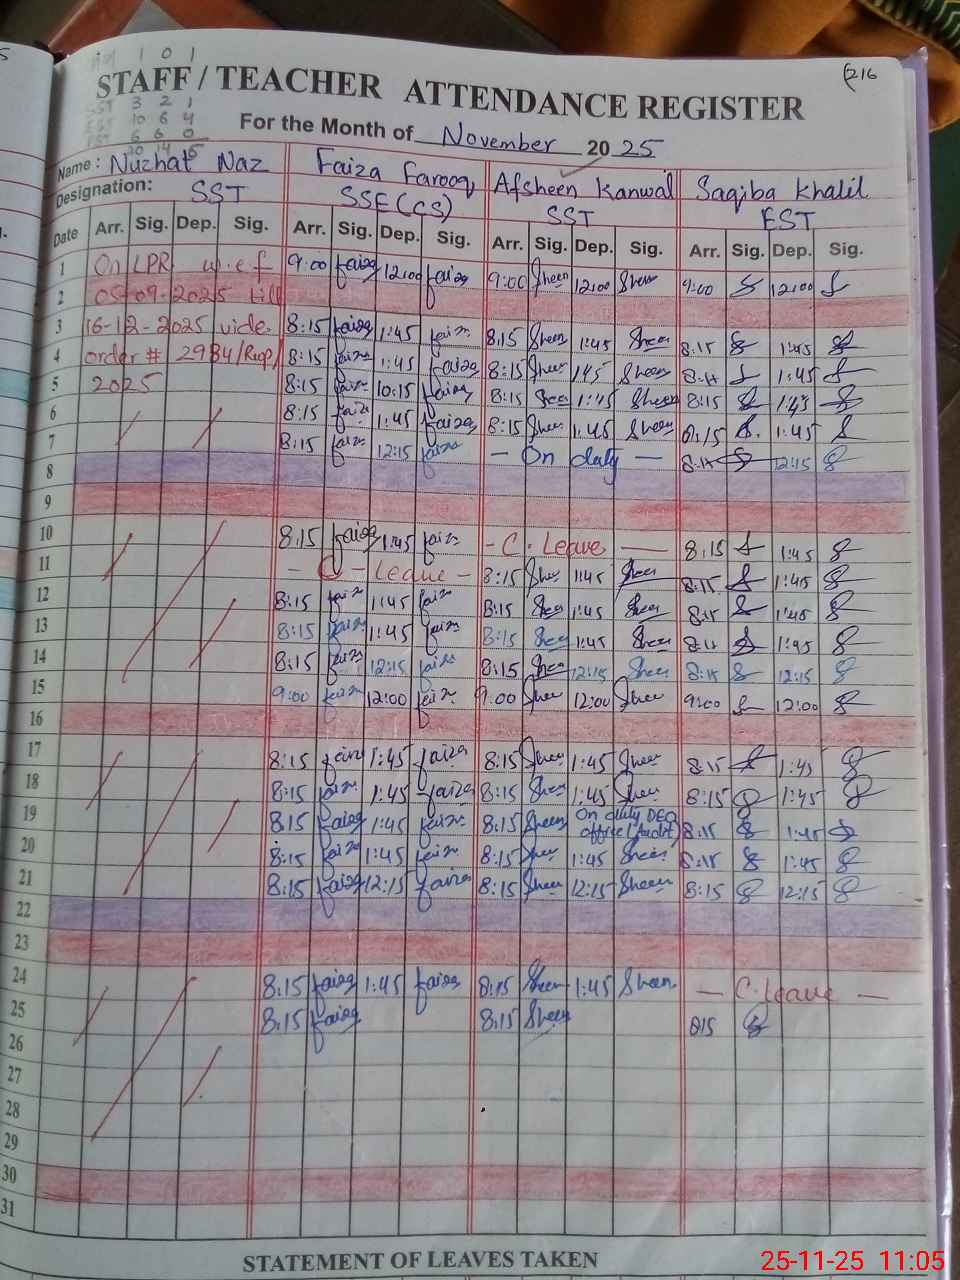 (216
1 0 1
STAFF / TEACHER ATTENDANCE REGISTER
SST 3 2 1
EST 10 6 4
6 6 0
For the Month of November 2025
Name : Nuzhat Naz Faiza Farooq Afsheen Kanwal Saqiba Khalil
Designation: SST SSE(CS) SST EST
Date Arr. Sig. Dep. Sig. Arr. Sig. Dep. Sig. Arr. Sig. Dep. Sig. Arr. Sig. Dep. Sig.
1 On LPR w.e.f 9:00 faiza 12:00 faiza 9:00 Sheen 12:00 Sheen 9:00 12:00
2 05-09-2025 till
3 16-12-2025 vide 8:15 faiza 1:45 faiza 8:15 Sheen 1:45 Sheen 8:15 1:45
4 order # 2984/ 8:15 faiza 1:45 faiza 8:15 Sheen 1:45 Sheen 8:15 1:45
5 2025 8:15 faiza 10:15 faiza 8:15 Sheen 1:45 Sheen 8:15 1:45
6 8:15 faiza 1:45 faiza 8:15 Sheen 1:45 Sheen 8:15 1:45
7 8:15 faiza 12:15 faiza - On duty - 8:15 12:15
8
9
10 8:15 faiza 1:45 faiza - C. Leave - 8:15 1:45
11 - C - Leave - 8:15 Sheen 1:45 Sheen 8:15 1:45
12 8:15 faiza 1:45 faiza 8:15 Sheen 1:45 Sheen 8:15 1:45
13 8:15 faiza 1:45 faiza 8:15 Sheen 1:45 Sheen 8:15 1:45
14 8:15 faiza 12:15 faiza 8:15 Sheen 12:15 Sheen 8:15 12:15
15 9:00 faiza 12:00 faiza 9:00 Sheen 12:00 Sheen 9:00 12:00
16
17 8:15 faiza 1:45 faiza 8:15 Sheen 1:45 Sheen 8:15 1:45
18 8:15 faiza 1:45 faiza 8:15 Sheen 1:45 Sheen 8:15 1:45
19 8:15 faiza 1:45 faiza 8:15 Sheen On duty DEO office (Audit) 8:15 1:45
20 8:15 faiza 1:45 faiza 8:15 Sheen 1:45 Sheen 8:15 1:45
21 8:15 faiza 12:15 faiza 8:15 Sheen 12:15 Sheen 8:15 12:15
22
23
24 8:15 faiza 1:45 faiza 8:15 Sheen 1:45 Sheen - C. leave -
25 8:15 faiza 8:15 Sheen 815
26
27
28
29
30
31
STATEMENT OF LEAVES TAKEN
25-11-25 11:05